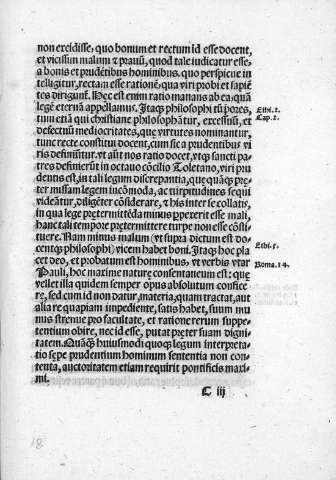 non excidisse, quo bonum et rectum id esse docent,
et vicissim malum & prauũ, quod tale iudicatur esse-
a bonis et prudẽtibus hominibus. quo perspicue in
telligitur, rectam esse rationẽ, qua viri probi et sapiẽ
tes dirigunt. Hec est enim ratio manans ab ea, quã
legẽ eternã appellamus. Itaqꝫ philosophi tũ poꝛes, Ethi. 2.
tum etiã qui christiane philosophãtur, excessuũ, et Cap. 2.
defectuũ mediocritates, que virtutes nominantur,
tunc recte constitui docent, cum sic a prudentibus vi
ris definiũtur. vt aũt nos ratio docet, vtqꝫ sancti pa-
tres definierũt in octauo cõcilio Toletano, viri pru
dentis est, in tali legum discrepantia, que quãqꝫ pre
ter missam legem incõmoda, ac turpitudines sequi
videãtur, diligẽter cõsiderare, & his inter se collatis,
in qua lege pretermittẽda minus ꝓpexerit esse mali,
hanc tali tempore pretermittere turpe non esse cõsti
tuere. Nam minus malum (vt supra dictum est do Ethi. 5.
centqꝫ philosophi) vicem habet boni. Itaqꝫ hoc pla
cet deo, et probatum est hominibus. vt verbis vtar Roma. 14.
Pauli, hoc maxime nature consentaneum est: que
vellet illa quidem semper opus absolutum confice
re, sed cum id non datur, materia, quam tractat, aut
alia re quapiam impediente, satis habet, suum mu
nus strenue pro facultate, et ratione rerum suppe-
tentium obire, nec id esse, putat preter suam digni
tatem. Quãqꝫ huiusmodi quoqꝫ legum interpreta-
tio sepe prudentium hominum sententia non con-
tenta, auctoritatem etiam requirit pontificis maxi
mi.
C iij
18